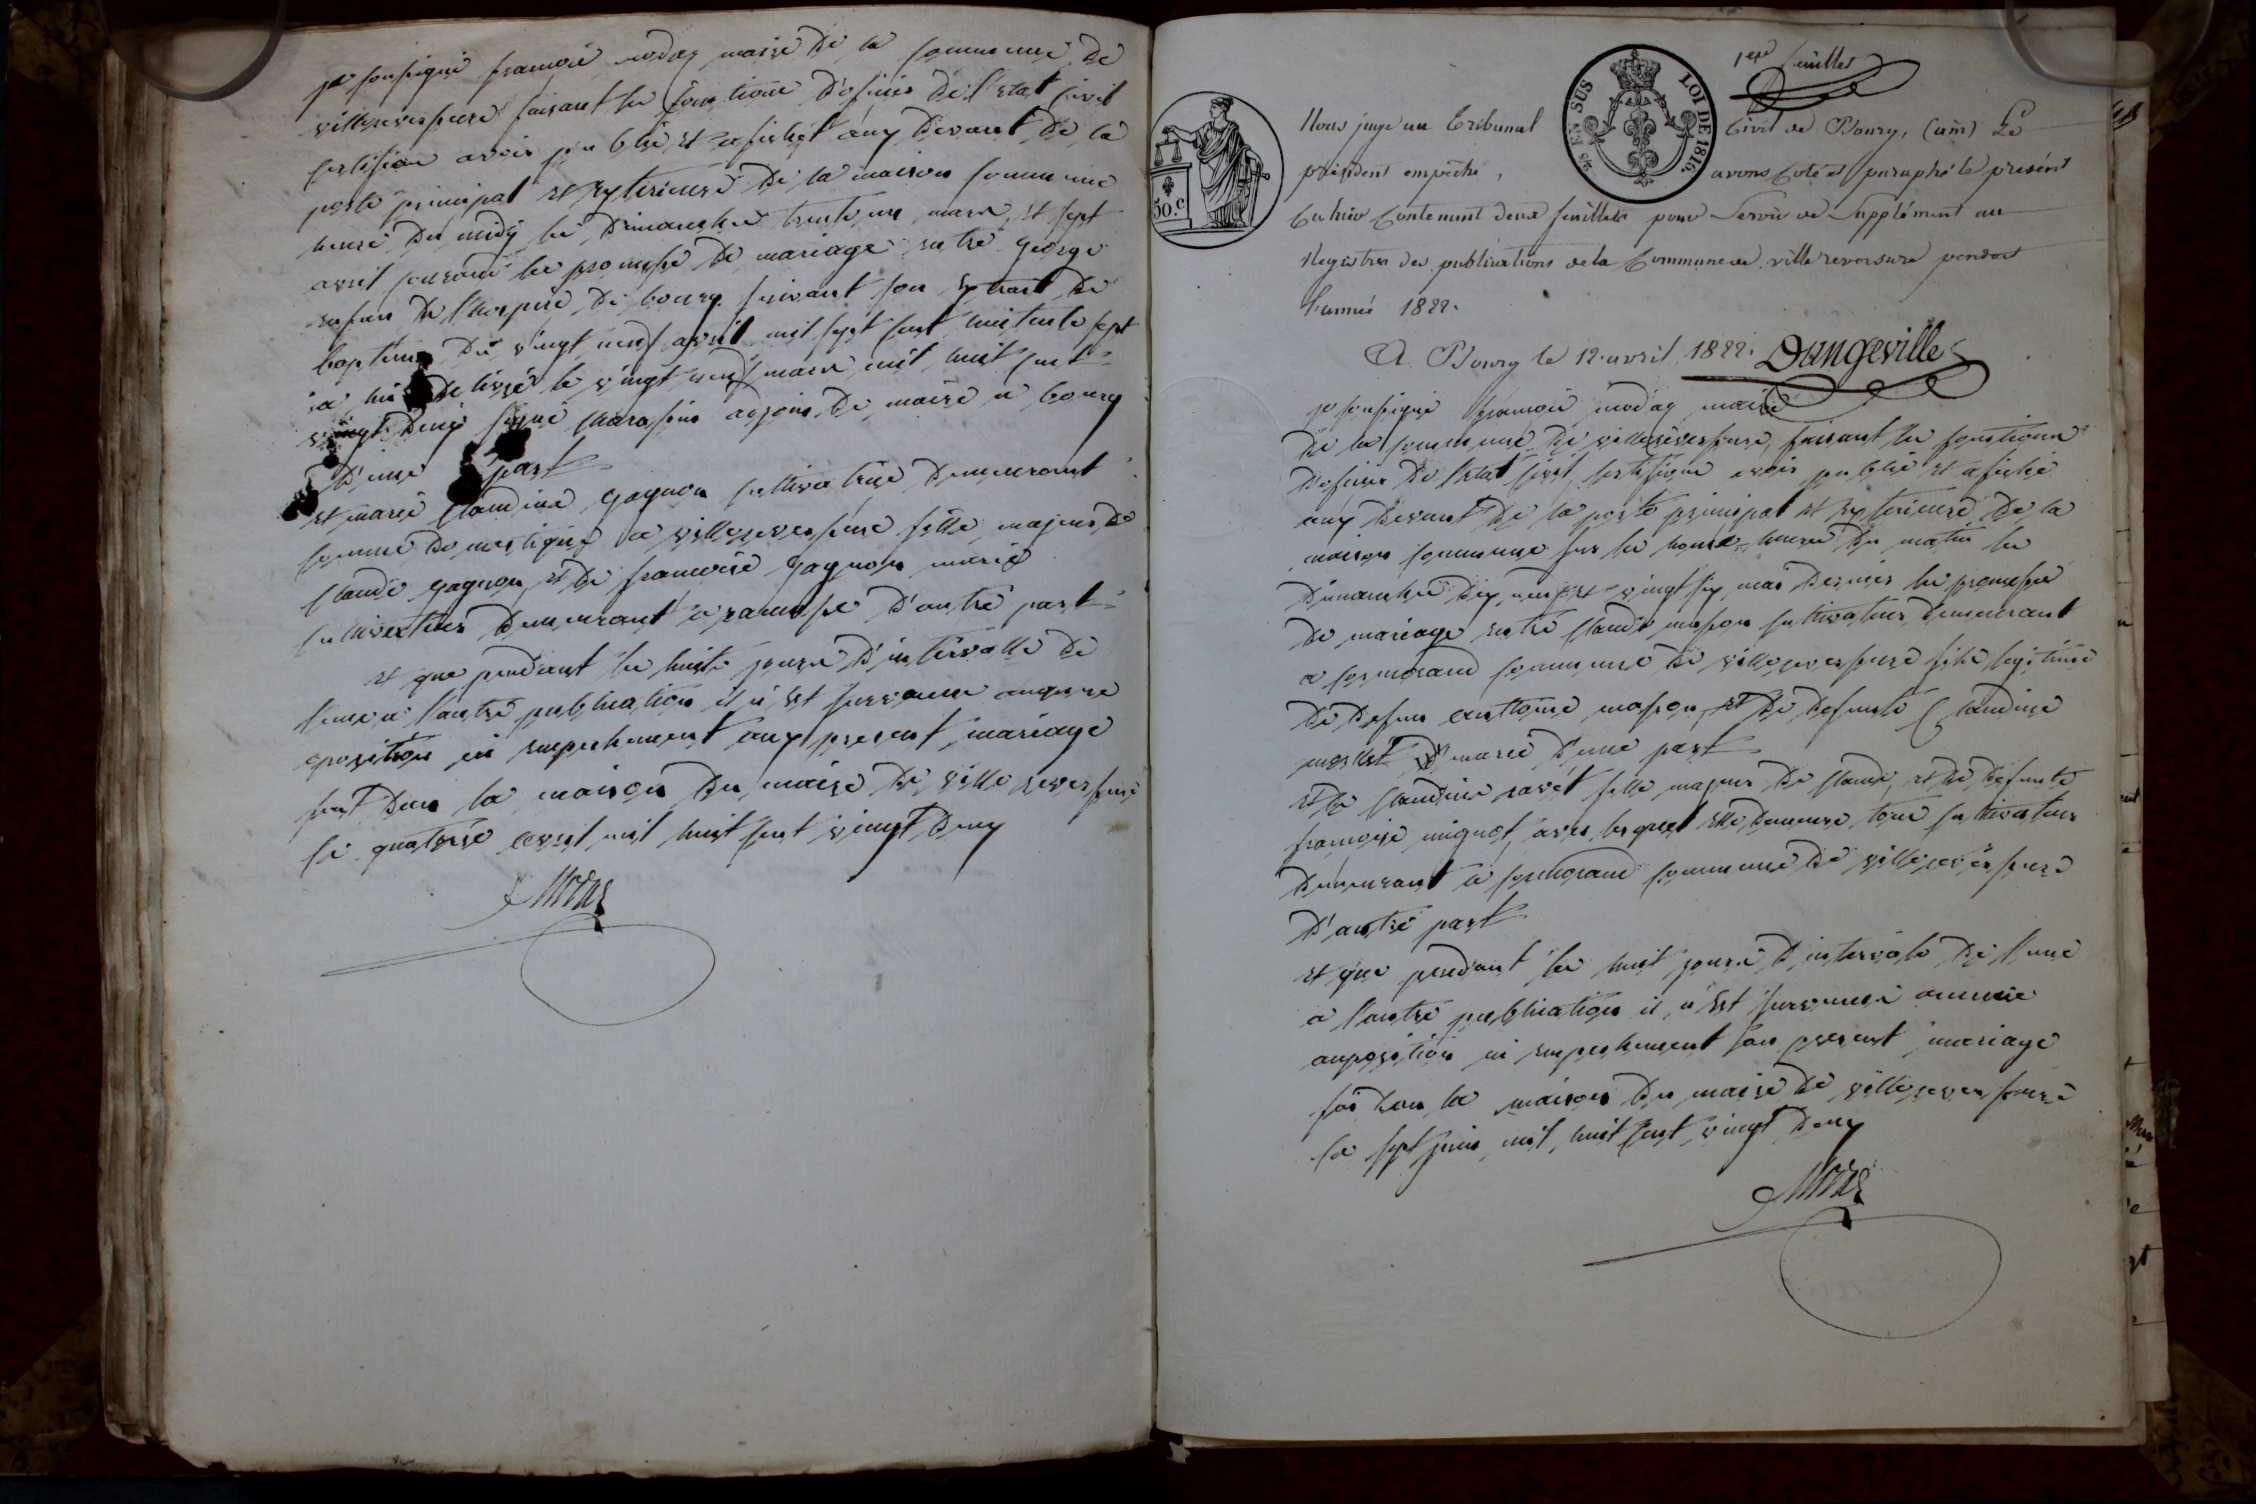 je soussigné francois modas maire de la commune de
villereversure faisant les fonctions d'oficier de l'etat civil
certifions avoir publié et afichét aux devant de la
porte principal et exterieure de la maison commune
heure du midy les dimanches trente un mars et sept
avril courant les promesse de mariage entre george
enfans de l'hospice de bourg suivant son extrait de
baptême du vingt neuf avril mil sept cent huitante sept
a lui delivré le vingt neuf mars mil huit cent
vingt deux signé adjoint de maire a bourg
d'une part
et marie claudine gagnon cultivatrice demeurant
comme domestique a villereversure fille majeur de
claude gagnon et de francoise gagnon mariés
cultivateurs demeurant a ramasse d'autre part
et que pendant les huits jours d'intervalle de
l'une a l'autre publication il n'est survenue aucune
oposition ni empechement aux present mariage
fait dans la maison du maire de villereversure
le quatorze avril mil huit cent vingt deux
Modas
1er feuillet
50.C
EN SUS
LOI DE 1816
Nous juge au Tribunal Civil de Bourg, (ain) Le
président empêché, avons Coté et paraphé le présent
Cahier Contenant deux feuillets pour Servir de Supplément au
Registres des publications de la Commune de villereversure pendant
l'année 1822.
A Bourg le 12 avril 1822. Dangeville
je soussigné francois modas maire
de la commune de villereversure, faisant les fonctions
d'oficier de l'etat civil certifions avoir publié et afiché
aux devant de la porte principal et exterieure de la
maison commune sur les heures du matin les
dimanches dix neuf et vingt six mai dernier les promesse
de mariage entre claude masson cultivateur demeurant
a commune de villereversure fils legitime
de defun anthoine masson et de defunte Claudine
marié d'une part
et de claudine ravet fille majeur de claude et de defunte
francoise mignot, avec lesquel elle demeure tous cultivateurs
demeurant a commune de villereversure
d'autre part
et que pendant les huit jours d'intervale de l'une
a l'autre publication il n'est survenue aucune
auposition ni empechement son present mariage
fai dans la maison du maire de villereversure
le sept juin mil huit cent vingt deux
Modas